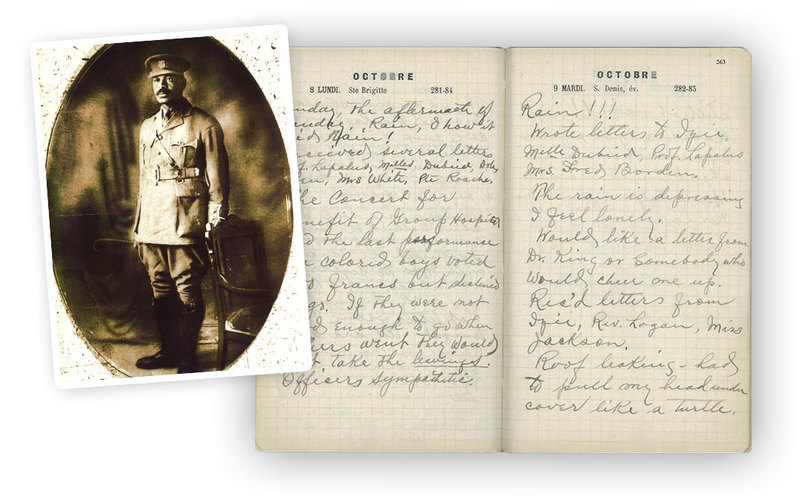 OCTOBRE
8 LUNDI. Ste Brigitte 281-84
nday, the aftermath of
nday. Rain, O how it
id Rain!
eceived several letter
f. Lapalus, Mlles. Dubied,
Mrs White, Pte Roache.
he Concert for
nefit of Group Hospital
d the last performance
colored boys voted
o francs but declined
go. If they were not
d enough to go when
hers went they would
t take the leavings.
Officers sympathetic.
263
OCTOBRE
9 MARDI. S. Denis, év. 282-83
Rain!!!
Wrote letters to
Mlle Dubied, Prof. Lapalus
Mrs. Fred Borden.
The rain is depressing
I feel lonely.
Would like a letter from
Dr. King or Somebody who
would cheer me up.
Rec'd letters from
Rev. Logan, Miss
Jackson.
Roof leaking - had
to pull my head under
cover like a turtle.